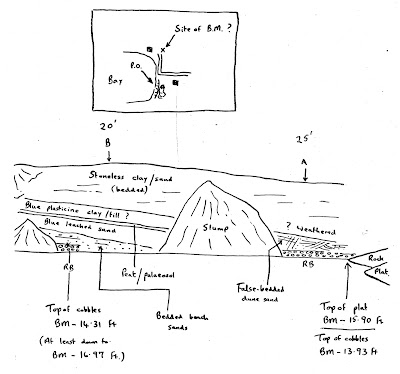 Site of B.M. ?
P.O.
Bay
20'
B
25'
A
Stoneless clay/sand
(bedded)
Blue plasticine clay/till ?
Blue leached sand
Slump
? weathered
Rock
Plat.
RB
RB
Peat/palaeosol
False-bedded
dune sand
Top of cobbles
BM - 14.31 Ft
(At least down to
BM - 16.97 Ft.)
Bedded beach
sands
Top of plat
BM - 15.90 Ft
Top of cobbles
BM - 13.93 Ft